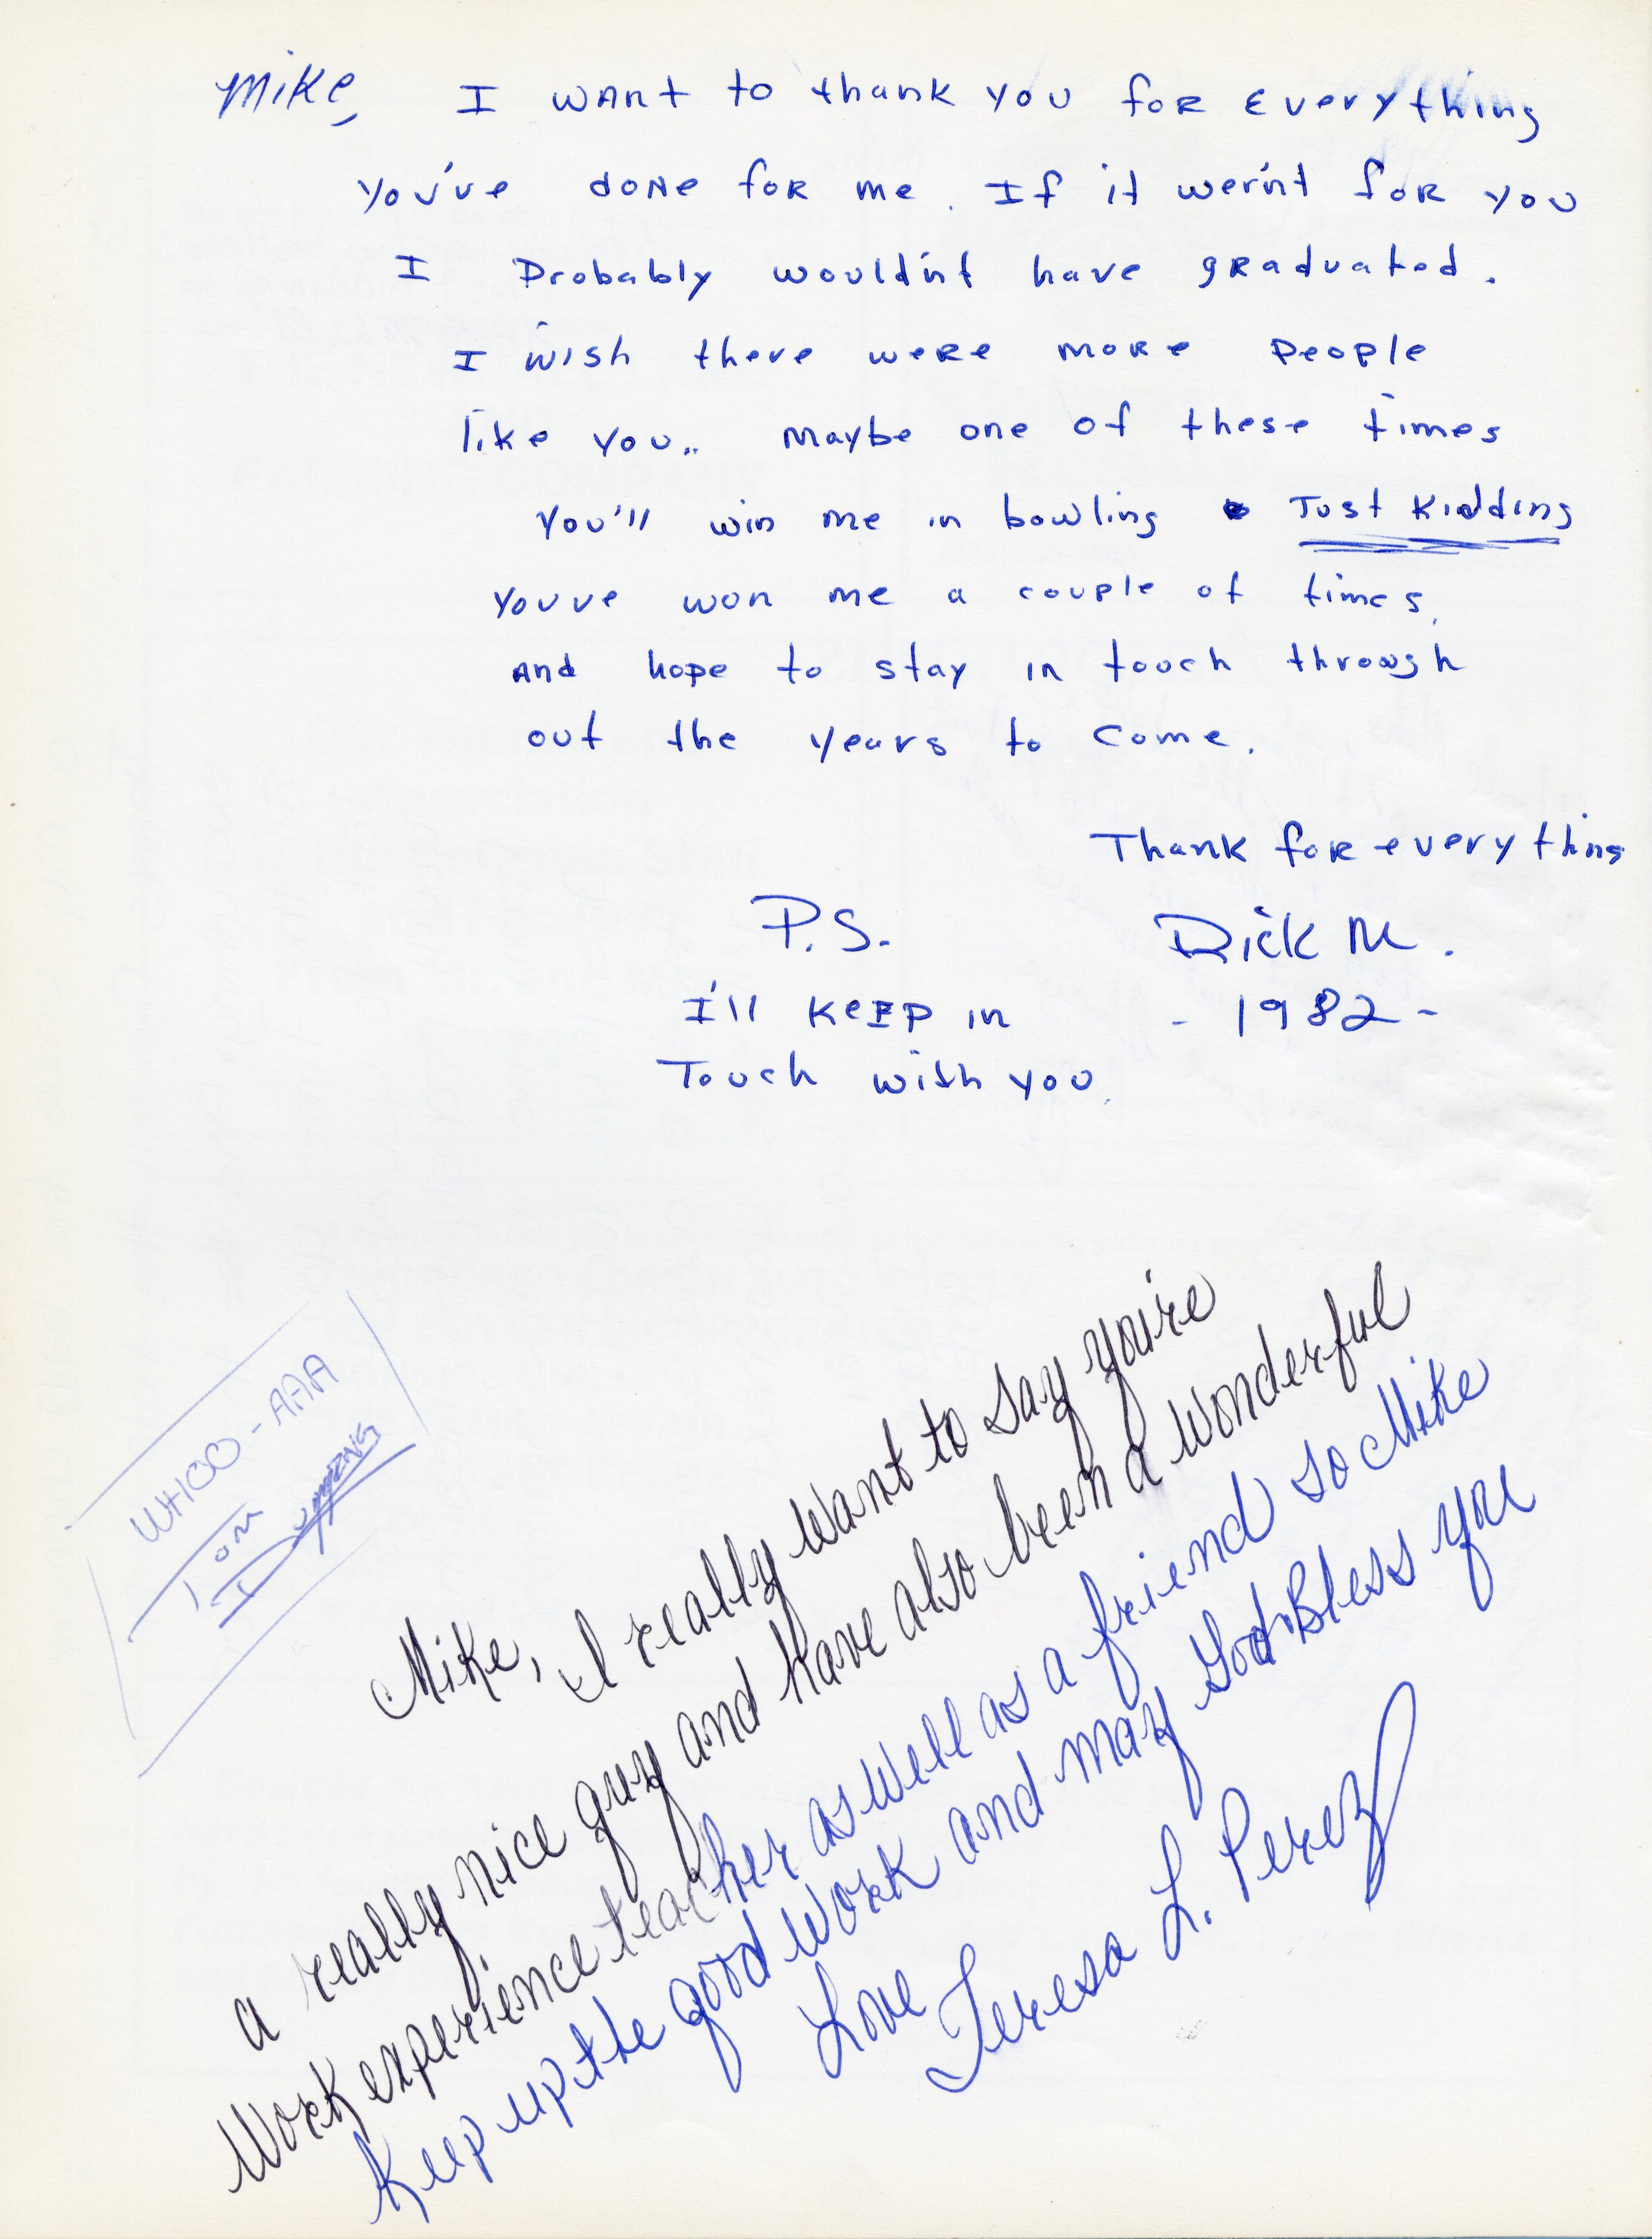 Mike, I want to thank you for everything
you've done for me. If it wern't for you
I Probably would'nt have graduated.
I wish there were more people
like you.. Maybe one of these times
you'll win me in bowling Just Kidding
youve won me a couple of times.
And hope to stay in touch through
out the years to come.
Thank for everything
P.S. Dick M.
I'll KEEP in - 1982 -
Touch with you.
WHOO-AAA
Tom
Mike, I really want to say you're
a really nice guy and have also been a wonderful
Work experience teacher as well as a friend so Mike
Keep up the good work and may God Bless you
Love
Teresa L. Perez